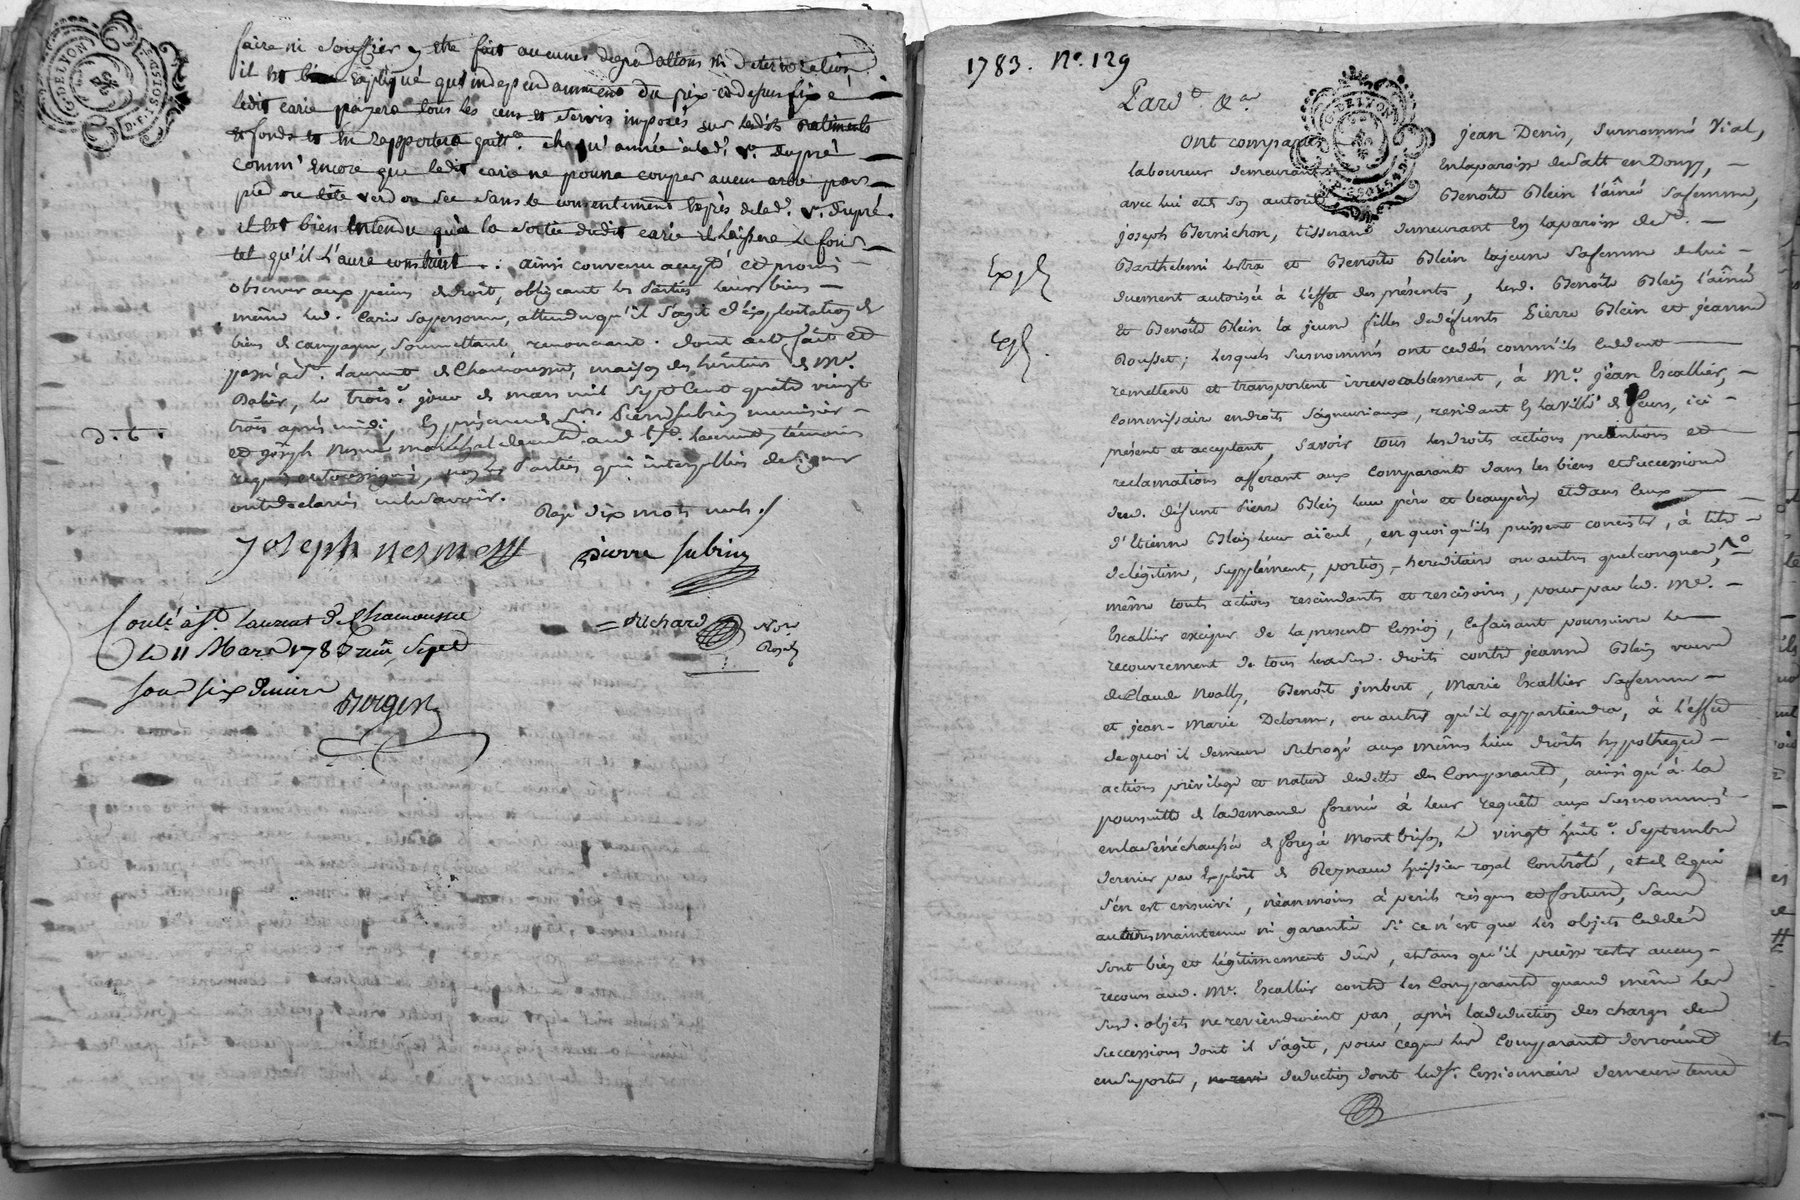 faire ni souffrir y etre fait aucunes degradations ni deteriorations
il est expliqué qu'independamment du prix cy dessus fixé
ledit carie payera tous les cens et servis imposés sur lesdits batiments
et fonds et en rapportera quitt.e chaqu'année à lad.e v.e dupré
comm'encore que ledit carie ne pourra couper aucun arbre par
pied ou tête verd ou sec sans le consentement exprès de lad.e v.e dupré.
il est bien entendu qu'à la sortie dudit carie il laissera le fond
tel qu'il l'aura construit. ainsi convenu accepté et promis
observer aux peines de droit, obligeant les Parties leurs biens
même led. Carie sa personne, attendu qu'il s'agit d'exploitation de
biens de campagne, soumettant renonçant. dont acte fait et
passé à St. Laurent de Chamousset, maison des héritiers de Mr.
le trois.e jour de mars mil sept cent quatre vingt
trois après midi, en présence de Sr. Pierre Subrin menuisier
et joseph Nesme maréchal demt. aud. St. Laurent témoins
requis et soussignés, non les Parties qui interpellées de signer
ont déclarés ne le savoir.
D. t.
Rayé dix mots nuls.
Joseph nesme pierre subrin
Contr.lé à St. Laurent de Chamousset
Le 11 Mars 1783 reçu Sept
sous six deniers
Richard Not.
Royal
1783. N.o 129
Pard.t &a
Ont comparu jean Denis, surnommé Vial,
laboureur demeurant en la paroisse de Salt en Donzy,
avec lui et de son autorité Benoîte Blein l'aînée sa femme,
joseph Bernichon, tisserand demeurant en la paroisse de
Barthelemi et Benoîte Blein la jeune sa femme de lui
duement autorisée à l'effet des présentes, lesd. Benoîte Blein l'aînée
Exp.
et Benoîte Blein la jeune filles de défunts Pierre Blein et jeanne
Rousset; lesquels susnommés ont cédés comm'ils cèdent
Exp.
remettent et transportent irrévocablement, à Me. jean Escallier,
Commissaire en droits seigneuriaux, résidant en la ville de feurs, ici
présent et acceptant, savoir tous les droits actions prétentions et
réclamations afférant aux comparants dans les biens et succession
dud. défunt Pierre Blein leur père et beaupère et dans ceux
d'Etienne Blein leur aïeul, en quoi qu'ils puissent consister, à titre
de légitime, supplément, portion héréditaire ou autres quelconques,
même toutes actions rescindants et rescisoires, pour par led. Me.
Escallier exciper de la présente cession, ce faisant poursuivre le
recouvrement de tous lesdits droits contre jeanne Blein veuve
de Claude Noally, Benoît jmbert, Marie Escallier sa femme
et jean-Marie Delorme, ou autres qu'il appartiendra, à l'effet
de quoi il demeure subrogé aux mêmes lieu droits hypothèque
actions privilège et nature de dette des Comparants, ainsi qu'à la
poursuitte de la demande formée à leur requête aux susnommés
en la sénéchaussée de forez à Montbrison, le vingt huit.e septembre
dernier par Exploit de Reynaud huissier royal contrôlé, et de ce qui
s'en est ensuivi, néanmoins à périls risques et fortune, sans
autres maintenue ni garantie si ce n'est que les objets cédés
sont bien et légitimement dûs, et sans qu'il puisse rester aucun
recours aud. Me. Escallier contre les Comparants quand même les
susd. objets ne reviendroient pas, après la déduction des charges des
successions dont il s'agit, pour ce que les Comparants devroient
en suporter, déduction dont led. sr. Cessionnaire demeure tenu